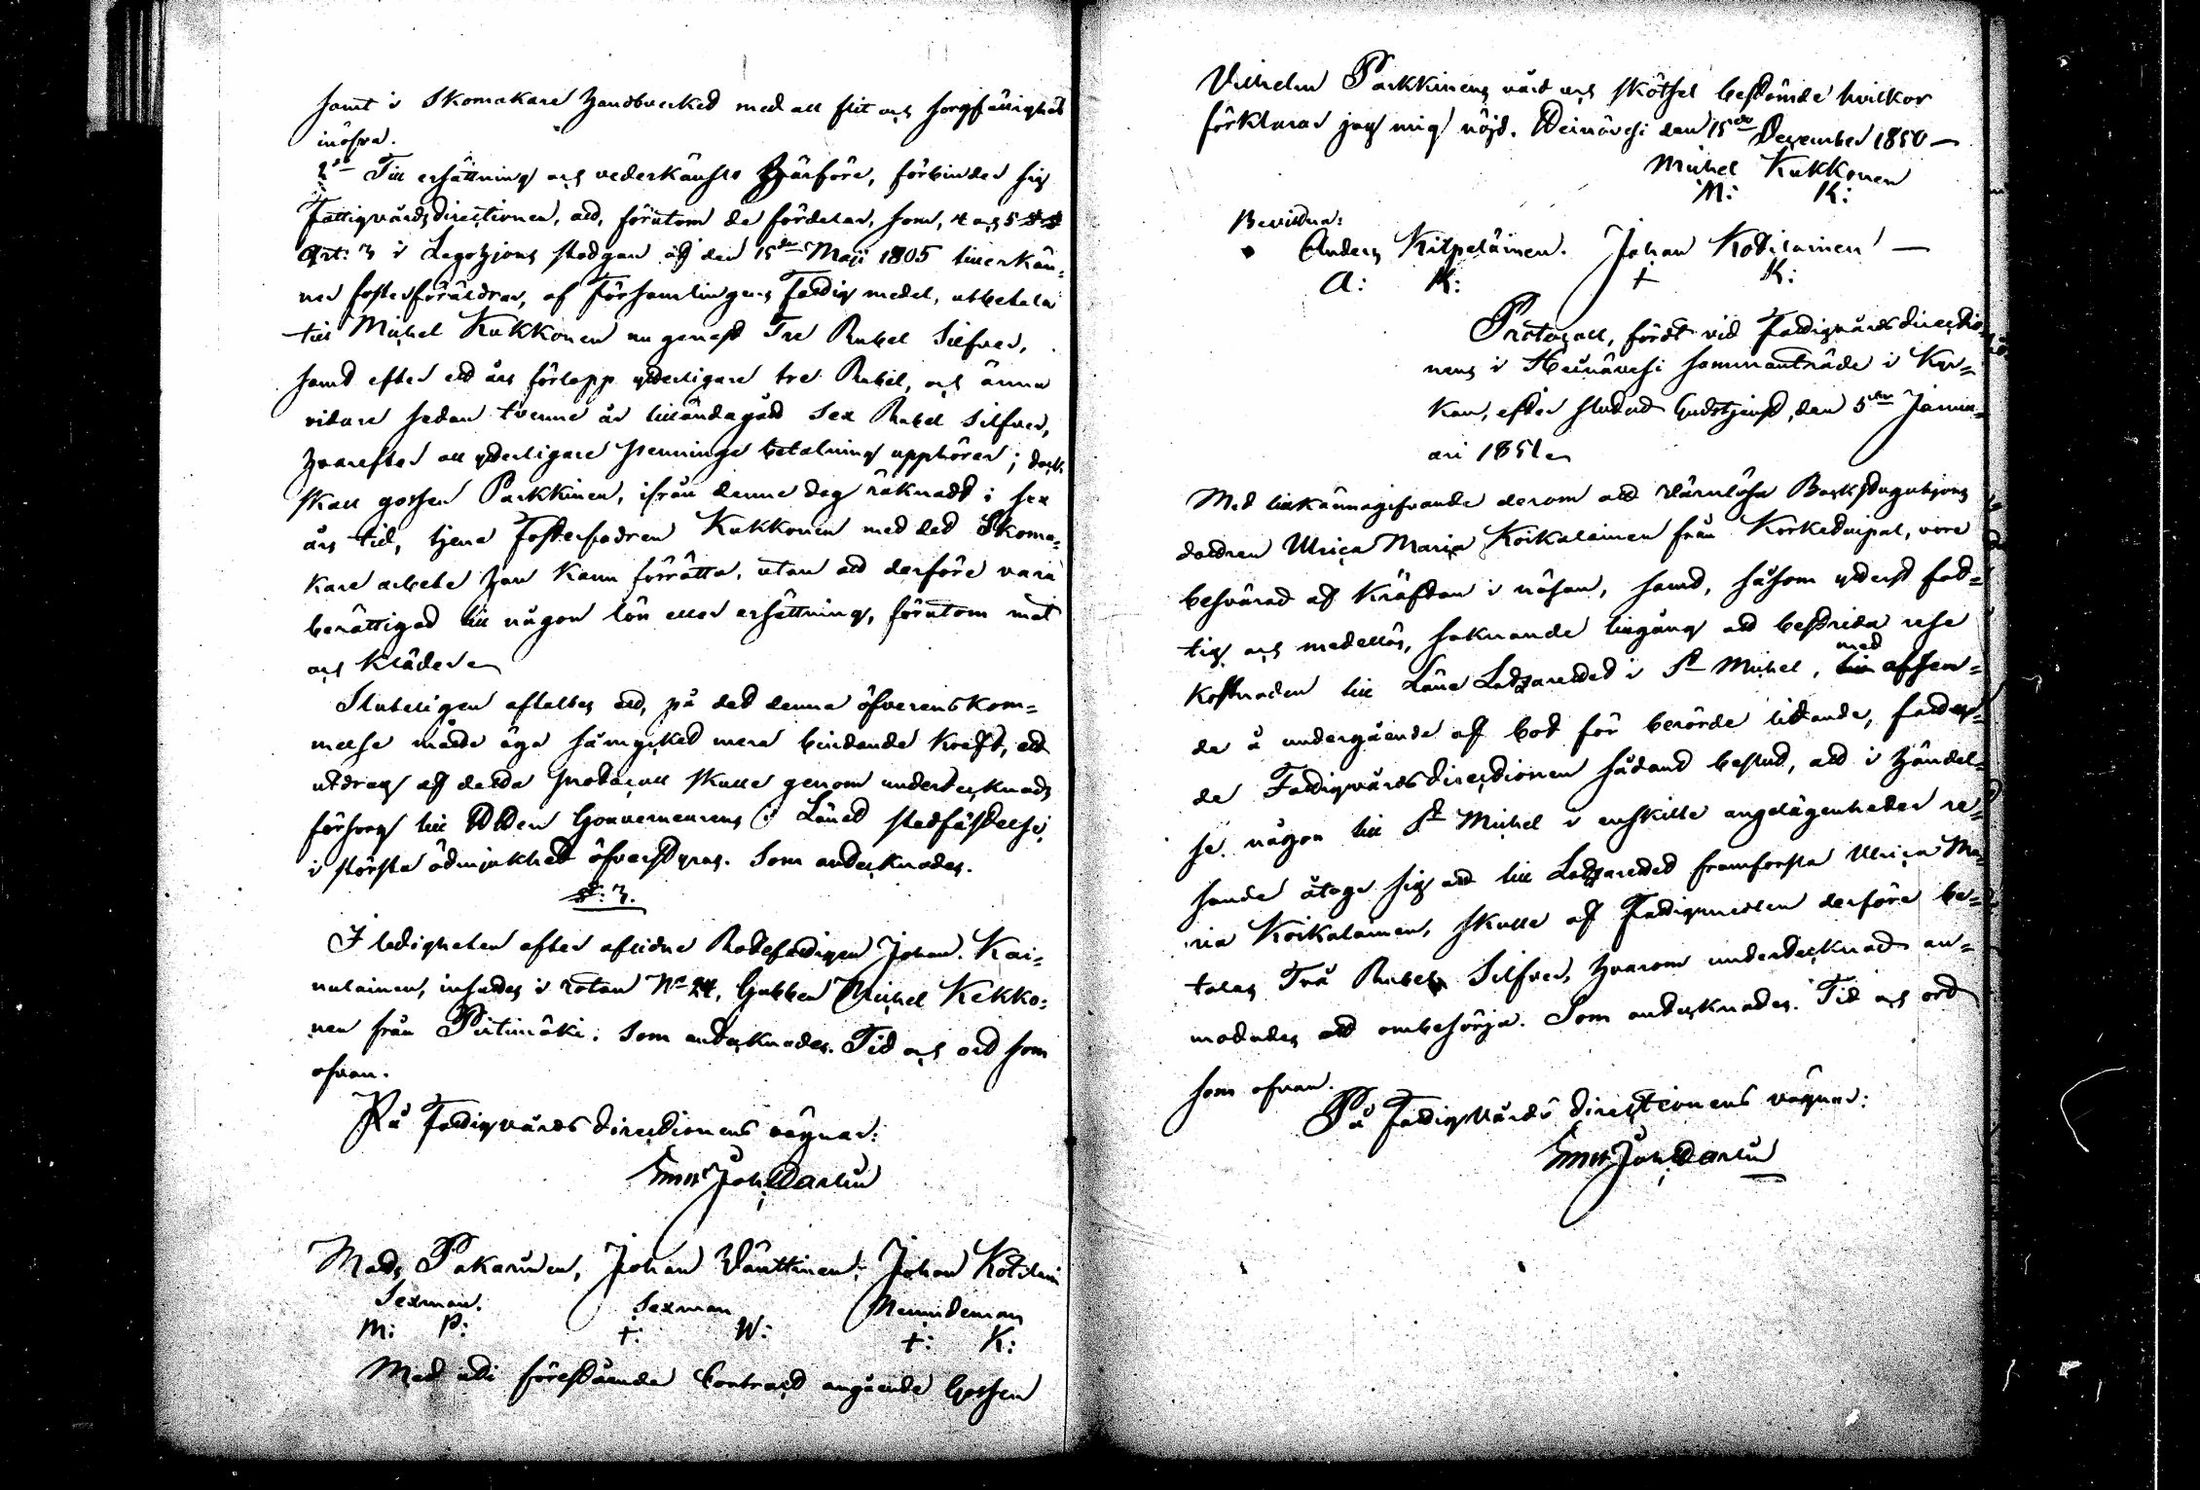 samt i Skomakare handtverket med all flit och sorgfällighet
inöfva.
2do Till ersättning och vederkänsla härföre, förbinder sig
Fattigvårdsdirectionen, att, förutom de fördelar, som, 4 och 5 §§
Art: 3 i Legohjons stadgan af den 15de Maji 1805 tillerkän-
ner fosterföräldrar, af Församlingens Fattig medel, utbetala
till Michel Kukkonen nu genast Tre Rubel Silfver,
samt efter ett års förlopp ytterligare tre Rubel, och ännu
vidare sedan tvenne år tilländagått Sex Rubel Silfver,
hvarefter all ytterligare pennings betalning upphörer; dock
skall gossen Parkkinen, ifrån denna dag räknadt i sex
års tid, tjena Fosterfadren Kukkonen med det Skoma-
kare arbete han kann förrätta, utan att derföre vara
berättigad till någon lön eller ersättning, förutom mat
och kläder.
Sluteligen aftaltes att, på det denna öfverenskom-
melse måtte äga så mycket mera bindande kraft, ett
utdrag af detta protocoll skulle genom undertecknads
försorg till Herr Gouverneurens i Länet stadfästelse,
i största ödmjukhet öfverstyras. Som antecknades.
§: 3.
I ledigheten efter aflidne Rotefattigen Johan Kai-
nulainen, insattes i rotan No 24, Gubben Michel Kekko-
nen från Pirtimäki. Som antecknades. Tid och ort som
ofvan.
På Fattigvårds directionens vägnar:
Joh:
Mats Pakarinen, Johan Vänttinen, Johan Kotilain
Sexman. Sexman Nemndeman
M: P: +: W: +: K:
Med uti förestående Contract angående Gossen
Vilhelm Parkkinens vård och skötsel bestämde vilkor
förklarar jag mig nöjd. Heinävesi den 15de December 1850 —
Michel Kukkonen
M: K:
Bevittna:
Anders Kilpeläinen. Johan Kotilainen —
A: K: + K:
Protocoll, fördt vid Fattigvårds directio-
nens i Heinävesi sammanträde i Kyr-
kan, efter slutad Gudstjenst, den 5te Janu-
ari 1851.
Med tillkännagifvande derom att värnlösa Backstuguhjons
dottren Ulrica Maria Koikalainen från Kerke, vore
besvärad af kräftan i näsan, samt, såsom ytterst fat-
tig och medellös, saknande tillgång att bestrida rese
kostnaden till Läne Lazarettet i St Michel, med afseen-
de å undergående af bot för berörde lidande, fattade
Fattigvårdsdirectionen sådant beslut, att i händel-
se någon till St Michel i enskilte angelägenheter re-
sande åtoge sig att till Lazarettet framforsla Ulrica Ma-
ria Koikalainen, skulle af Fattigmedlen derföre be-
talas Två Rubel Silfver, hvarom undertecknad an-
modades att ombesörja. Som antecknades. Tid och ort
som ofvan.
På Fattigvårds directionens vägnar:
Joh: